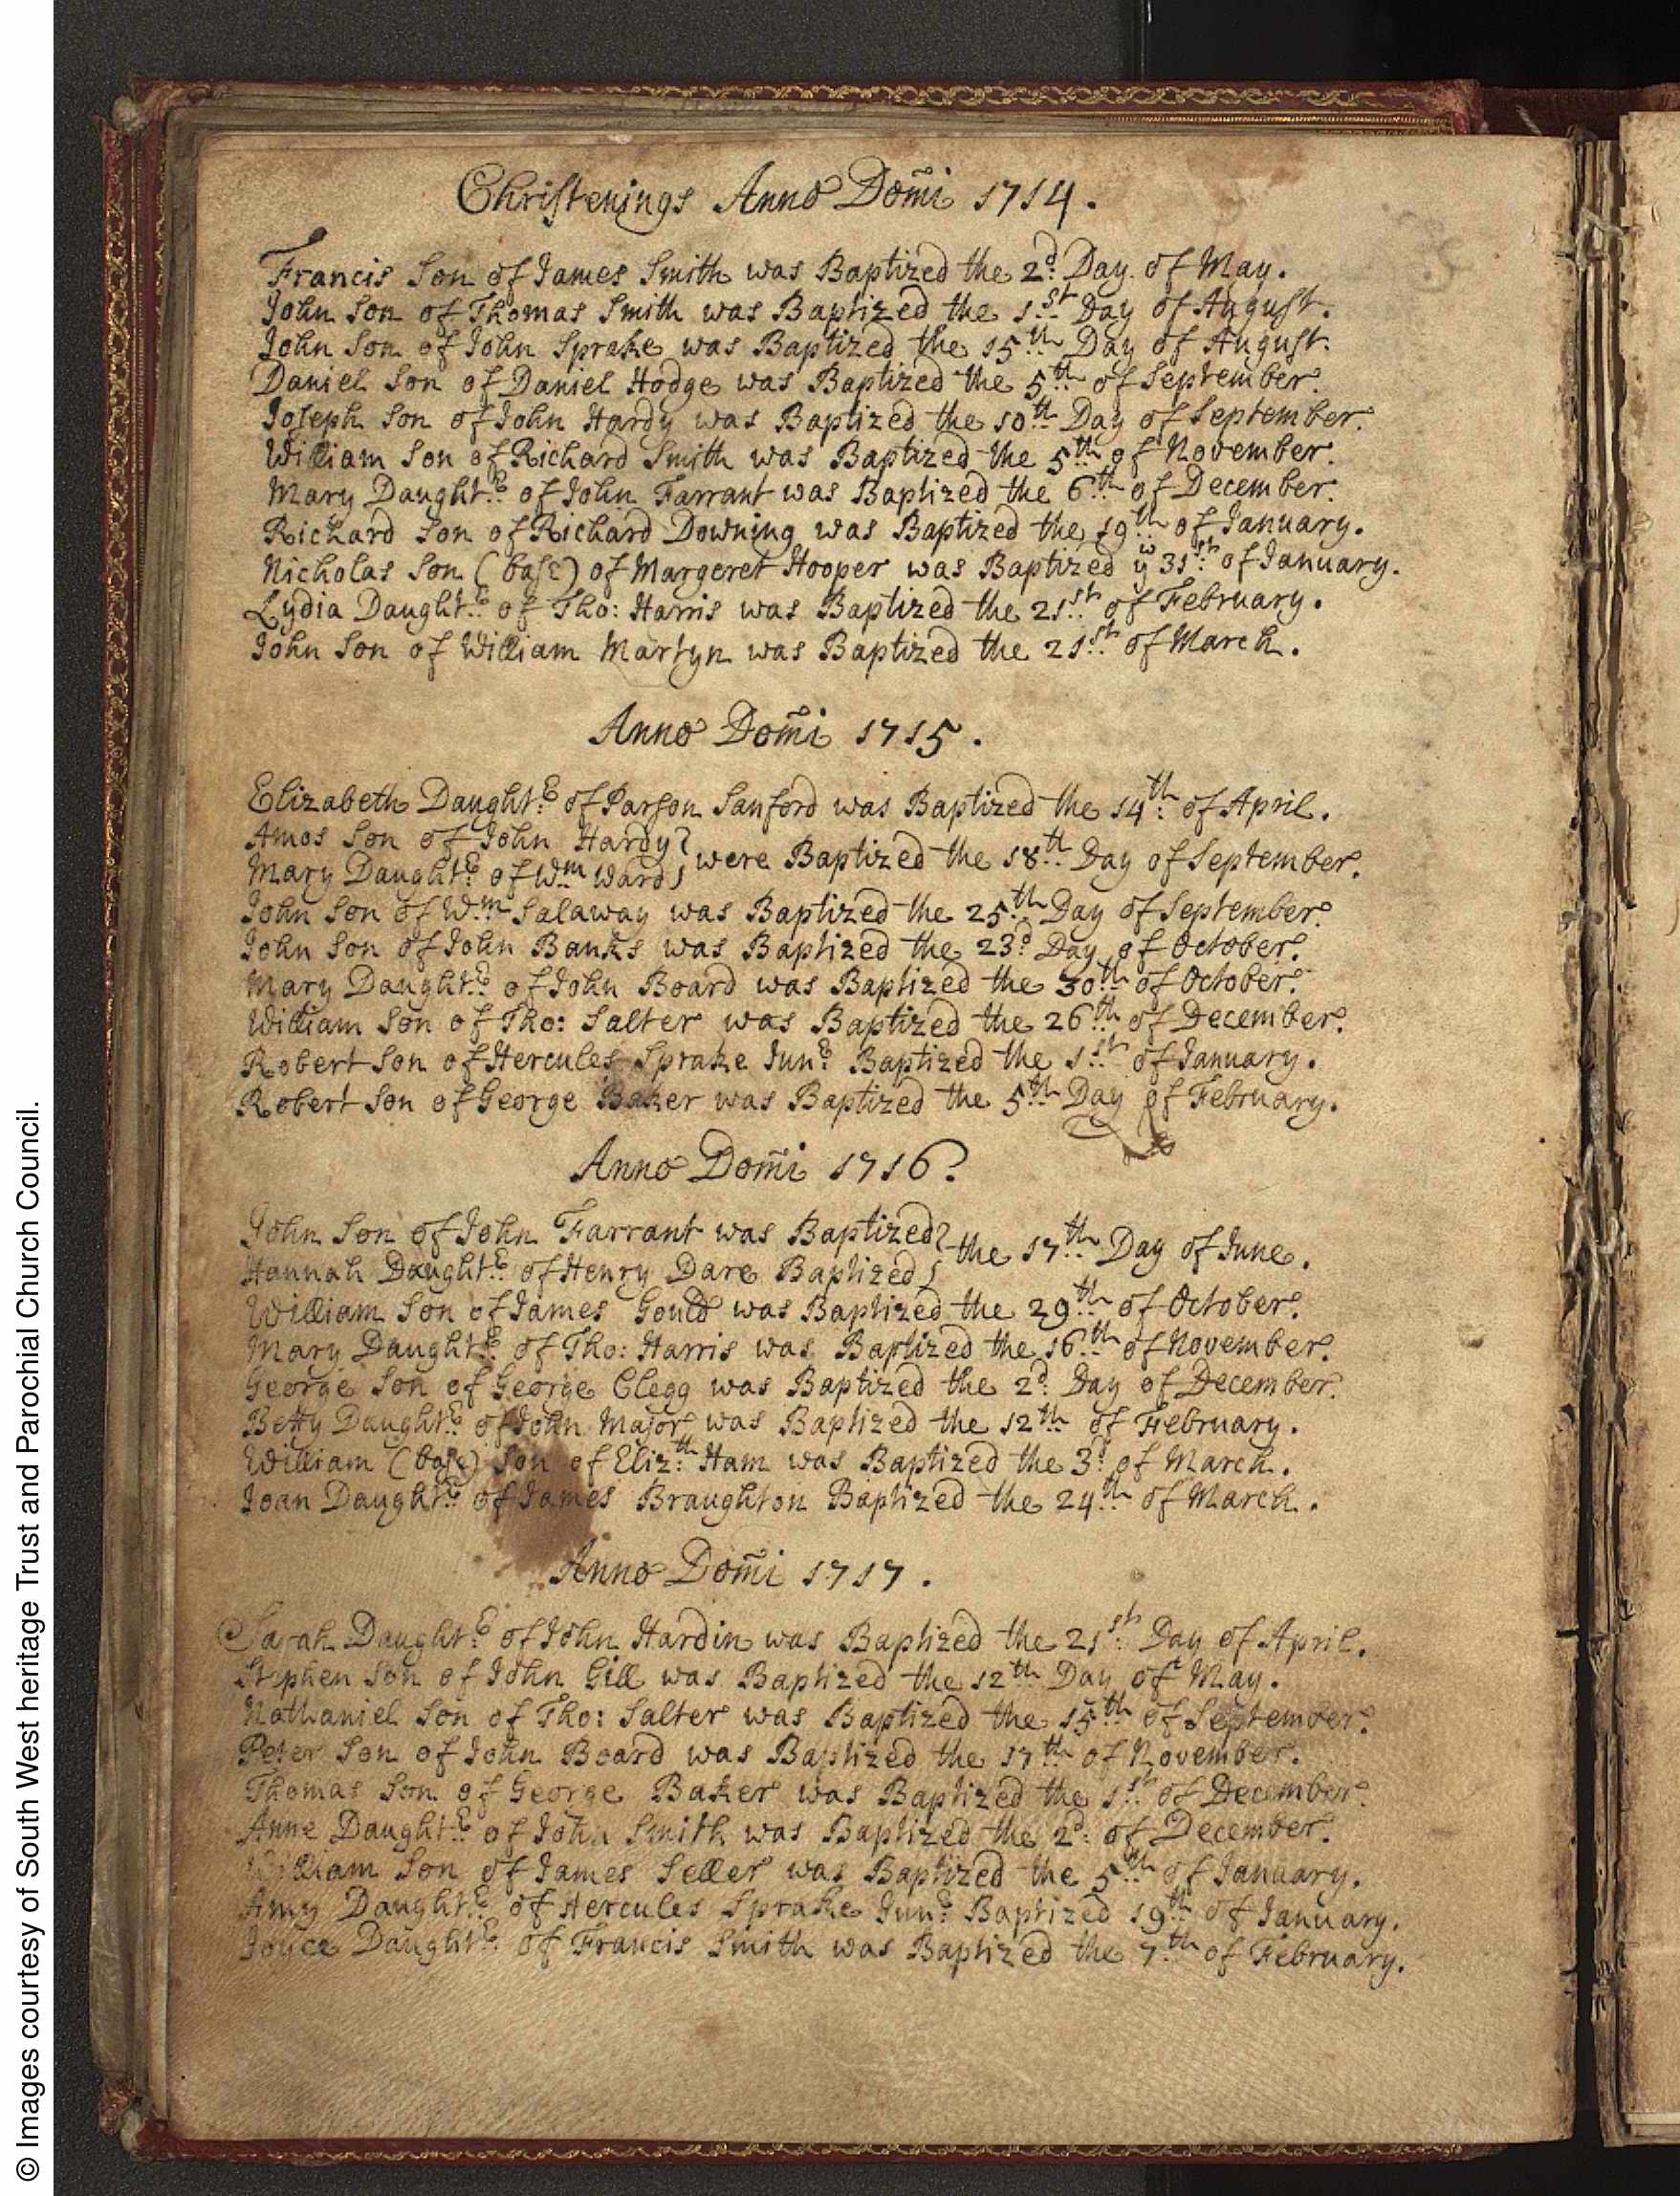 Christenings Anno Dom̃i 1714.
Francis Son of James Smith was Baptized the 2d: Day of May.
John Son of Thomas Smith was Baptized the 1st: Day of August.
John Son of John Sprake was Baptized the 15th Day of August.
Daniel Son of Daniel Hodge was Baptized the 5th of September.
Joseph Son of John Hardy was Baptized the 10th Day of September.
William Son of Richard Smith was Baptized the 5th of November.
Mary Daughtr: of John Farrant was Baptized the 6th of December.
Richard Son of Richard Downing was Baptized the 19th of January.
Nicholas Son (base) of Margeret Hooper was Baptized ye 31st: of January.
Lydia Daughtr: of Tho: Harris was Baptized the 21st: of February.
John Son of William Martyn was Baptized the 21st: of March.
Anno Dom̃i 1715.
Elizabeth Daughtr: of Parson Sanford was Baptized the 14th: of April.
Amos Son of John Hardy
Mary Daughtr: of Wm Ward } were Baptized the 18th Day of September.
John Son of Wm Salaway was Baptized the 25th Day of September.
John Son of John Banks was Baptized the 23d: Day of October.
Mary Daughtr: of John Board was Baptized the 30th of October.
William Son of Tho: Salter was Baptized the 26th of December.
Robert Son of Hercules Sprake Junr: Baptized the 1st of January.
Robert Son of George Baker was Baptized the 5th Day of February.
Anno Dom̃i 1716.
John Son of John Farrant was Baptized
Hannah Daughtr: of Henry Dare Baptized } the 17th Day of June.
William Son of James Gould was Baptized the 29th of October.
Mary Daughtr: of Tho: Harris was Baptized the 16th of November.
George Son of George Clegg was Baptized the 2d: Day of December.
Betty Daughtr: of John Major was Baptized the 12th of February.
William (base) Son of Eliz:th Ham was Baptized the 3d: of March.
Joan Daughtr: of James Braughton Baptized the 24th of March.
Anno Dom̃i 1717.
Sarah Daughtr: of John Hardin was Baptized the 21st: Day of April.
Stephen Son of John Gill was Baptized the 12th Day of May.
Nathaniel Son of Tho: Salter was Baptized the 15th of September.
Peter Son of John Board was Baptized the 17th of November.
Thomas Son of George Baker was Baptized the 1st: of December.
Anne Daughtr: of John Smith was Baptized the 2d: of December.
William Son of James Seller was Baptized the 5th of January.
Amy Daughtr: of Hercules Sprake Junr: Baptized 19th of January.
Joyce Daughtr: of Francis Smith was Baptized the 7th of February.
© Images courtesy of South West heritage Trust and Parochial Church Council.